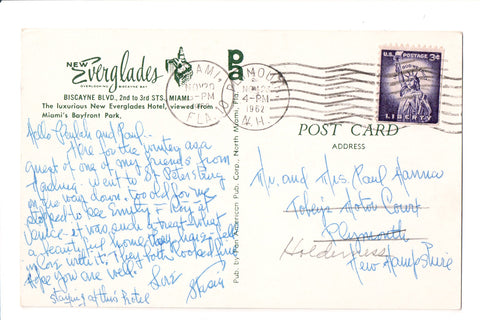 NEW
Everglades
OVERLOOKING BISCAYNE BAY
BISCAYNE BLVD., 2nd to 3rd STS., MIAMI
The luxurious New Everglades Hotel, viewed from
Miami's Bayfront Park.
Hello Beulah and Paul -
Here for the winter as a
guest of one of my friends from
went to St Petersburg
on the way down. Too cold for me
stopped to see Emily + Roy at
Venice - it was such a treat. What
a beautiful home they have. I fell
in love with it. They both looked fine
Hope you are well.
Love
staying at this hotel
pa
Pub. by American Pub. Corp., North Miami, Fla.
MIAMI
NOV 20
PM
FLA.
PLYMOUTH
NOV 23
4-PM
1962
N.H.
U.S. POSTAGE 3¢
IN GOD WE TRUST
LIBERTY
POST CARD
ADDRESS
Mr. and Mrs Paul Hanna
Tobey's Motor Court
Plymouth
Holderness
New Hampshire